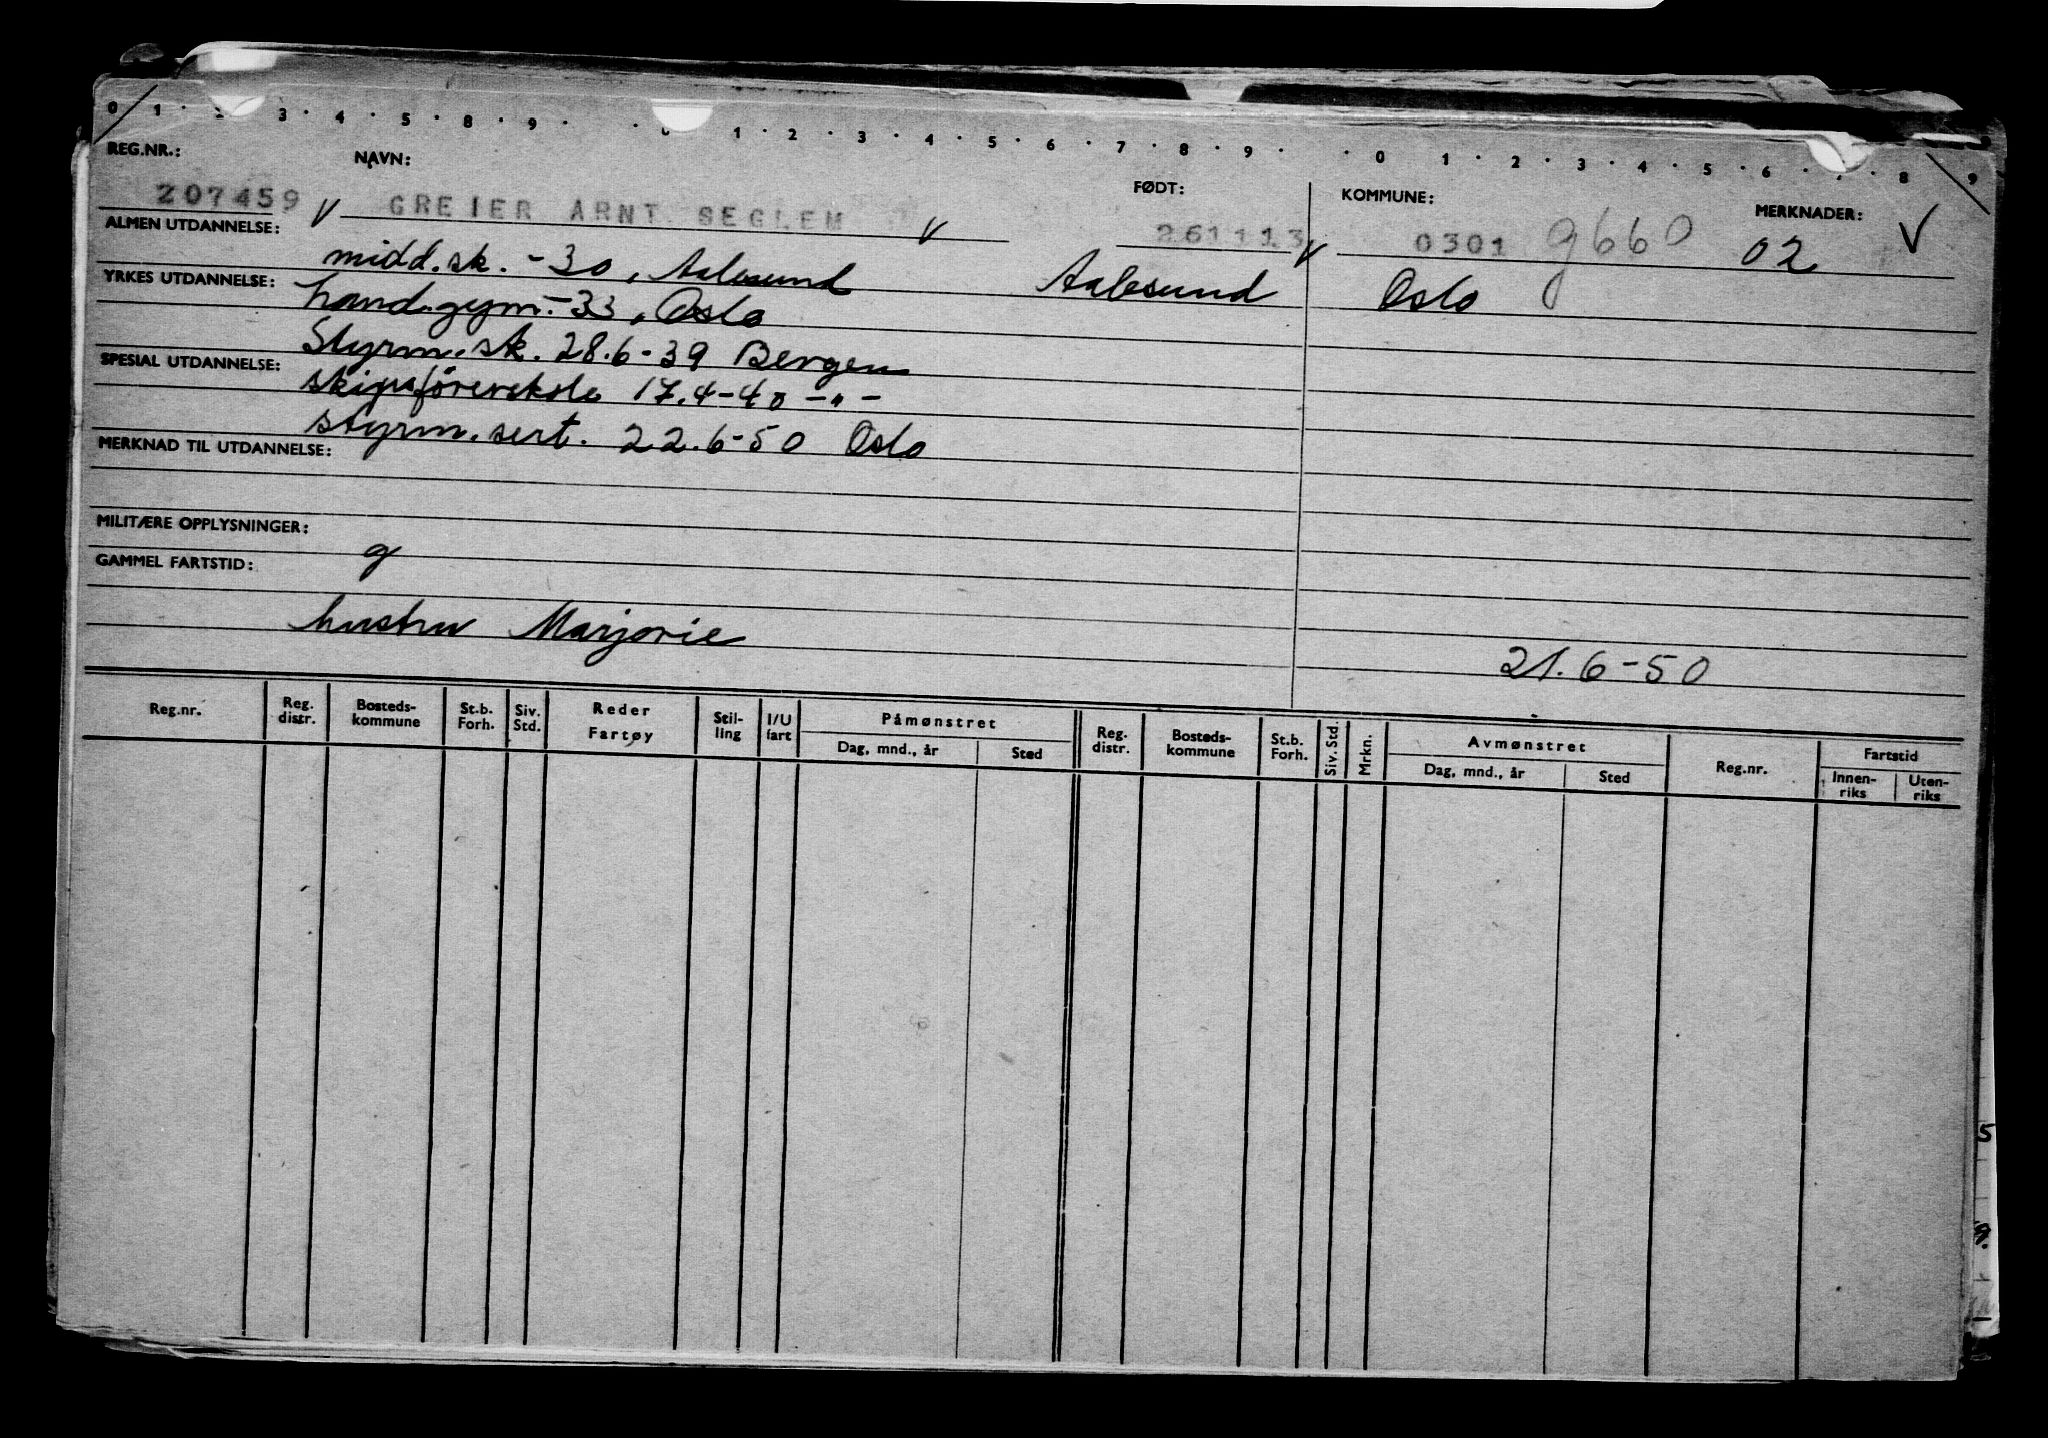 0 1 · 2 3 · 4 · 5 · 8 · 9 · · 0 1 · 2 · 3 · 4 · 5 · 6 · 7 · 8 · 9 · · 0 1 · 2 · 3 · 4 · 5 · 6 · 8 9
REG.NR.: NAVN: FØDT: KOMMUNE: MERKNADER:
207459 V GREIER ARNT SEGLEM V 261113 V 0301 9660 02 V
ALMEN UTDANNELSE: midd.sk. -30, Aalesund Aalesund Oslo
YRKES UTDANNELSE: hand.gym.-33, Oslo
Styrm.sk. 28.6-39 Bergen
SPESIAL UTDANNELSE: skipsförereksle 17.4-40 -"-
styrm.sert. 22.6-50 Oslo
MERKNAD TIL UTDANNELSE:
MILITÆRE OPPLYSNINGER:
g
GAMMEL FARTSTID:
hustru Marjorie
21.6-50
Reg.nr. Reg. distr. Bosteds-kommune St.b. Forh. Siv. Std. Reder Fartøy Stil-ling I/U fart Påmønstret Reg. distr. Bosteds-kommune St.b. Forh. Siv. Std. Mrkn. Avmønstret Reg.nr. Fartstid
Dag, mnd., år Sted Dag, mnd., år Sted Innen-riks Uten-riks
5
9.